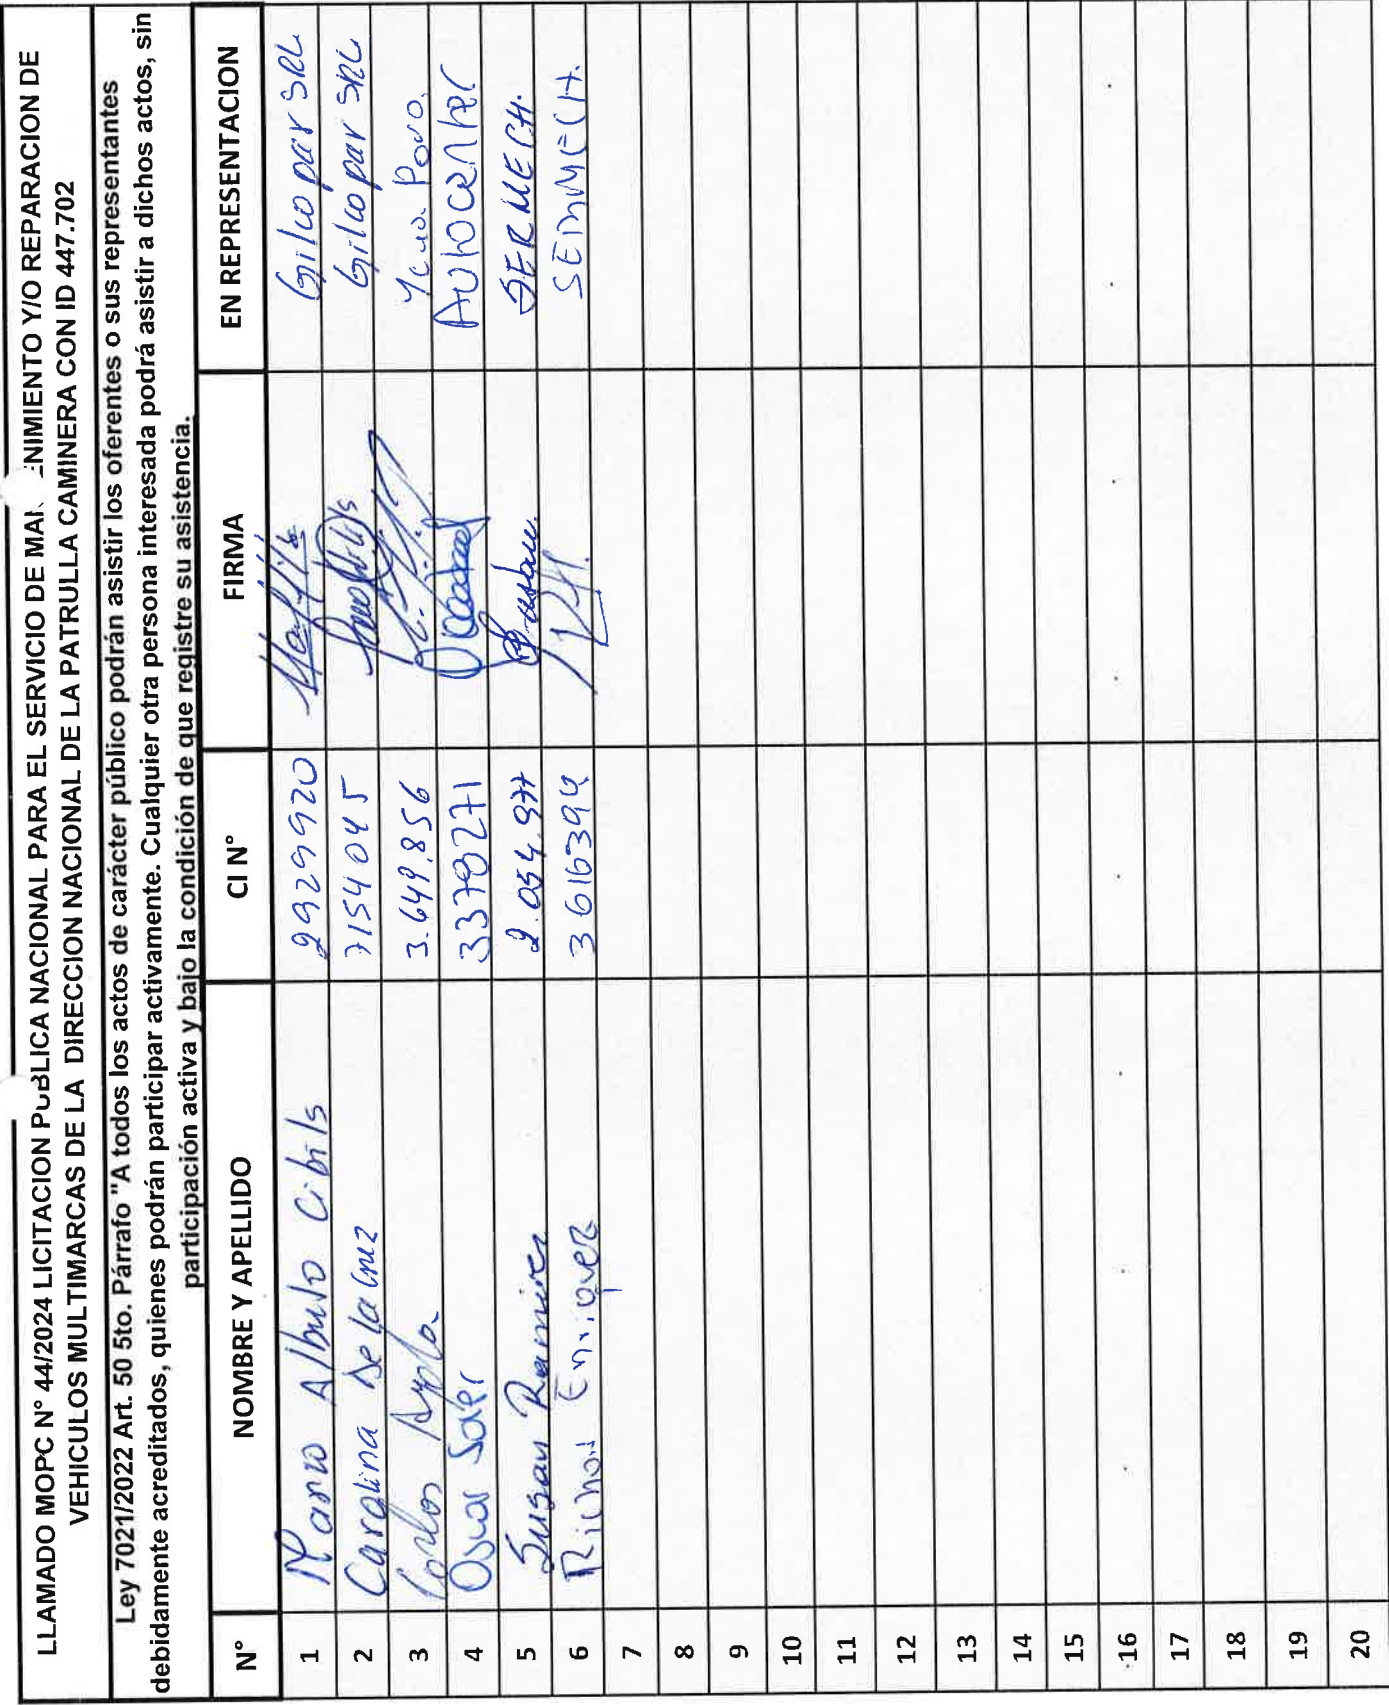 LLAMADO MOPC N° 44/2024 LICITACION PUBLICA NACIONAL PARA EL SERVICIO DE MAN ENIMIENTO Y/O REPARACION DE
VEHICULOS MULTIMARCAS DE LA DIRECCION NACIONAL DE LA PATRULLA CAMINERA CON ID 447.702
Ley 7021/2022 Art. 50 5to. Párrafo "A todos los actos de carácter público podrán asistir los oferentes o sus representantes
debidamente acreditados, quienes podrán participar activamente. Cualquier otra persona interesada podrá asistir a dichos actos, sin
participación activa y bajo la condición de que registre su asistencia.
N° NOMBRE Y APELLIDO CI N° FIRMA EN REPRESENTACION
1 Mario Alberto Cibils 2929920 Gilcopar SRL
2 Carolina De la Cruz 7154045 Gilcopar SRL
3 Carlos Ayala 3.649.856
4 Oscar Soler 3378271 Autocenter
5 Susan Ramirez 2.054.977 SERMECH.
6 Richard Enriquez 3616394 SERMECH.
7
8
9
10
11
12
13
14
15
16
17
18
19
20